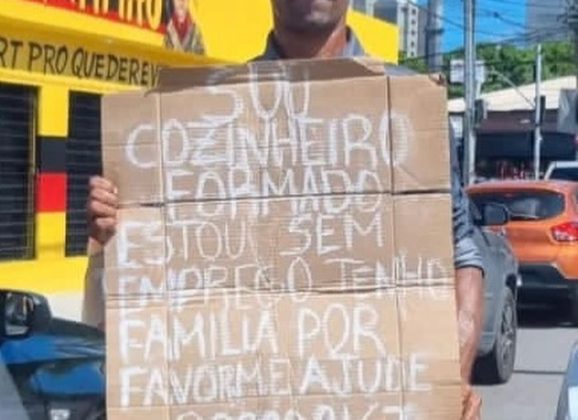 RT PRO QUE DER E V
SOU
COZINHEIRO
FORMADO
ESTOU SEM
EMPREGO TENHO
FAMILIA POR
FAVOR ME AJUDE